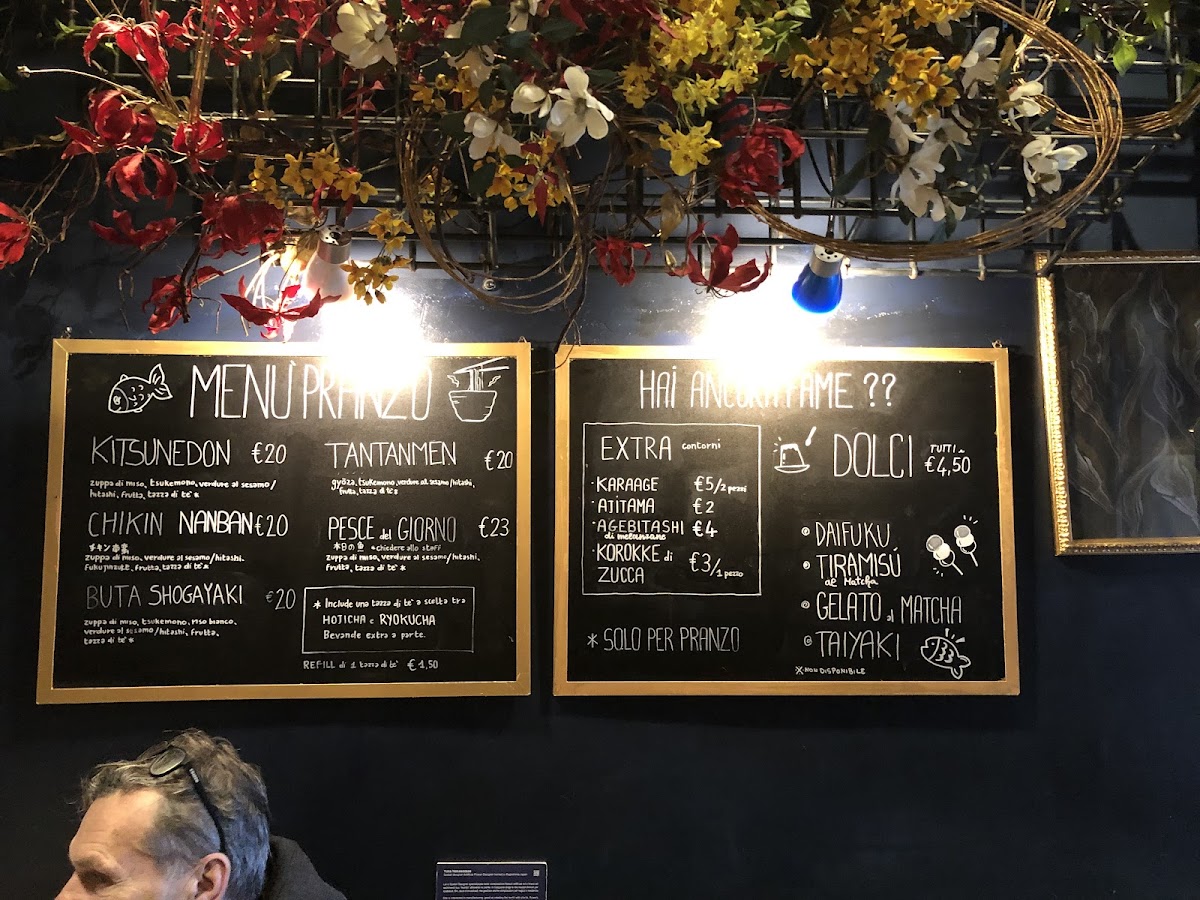 MENÙ PRANZO
KITSUNEDON €20
zuppa di miso, tsukemono, verdure al sesamo/
hitashi, frutta, tazza di te' *
CHIKIN NANBAN €20
zuppa di miso, verdure al sesamo/hitashi.
fukujinzuke, frutta, tazza di te' *
BUTA SHOGAYAKI €20
zuppa di miso, tsukemono, riso bianco,
verdure al sesamo/hitashi, frutta,
tazza di te' *
TANTANMEN €20
gyōza, tsukemono, verdure al sesamo/hitashi,
frutta, tazza di te' *
PESCE del GIORNO €23
本日の魚 *chiedere allo staff
zuppa di miso, verdure al sesamo/hitashi,
frutta, tazza di te' *
* Include una tazza di te' a scelta tra
HOJICHA e RYOKUCHA
Bevande extra a parte.
REFILL di 1 tazza di te' €1,50
HAI ANCORA FAME ??
EXTRA contorni
· KARAAGE €5/2 pezzi
· AJITAMA €2
· AGEBITASHI €4
di melanzane
· KOROKKE di
ZUCCA €3/1 pezzo
* SOLO PER PRANZO
DOLCI TUTTI a
€4,50
DAIFUKU
TIRAMISÚ
al Matcha
GELATO al MATCHA
TAIYAKI
※ NON DISPONIBILE